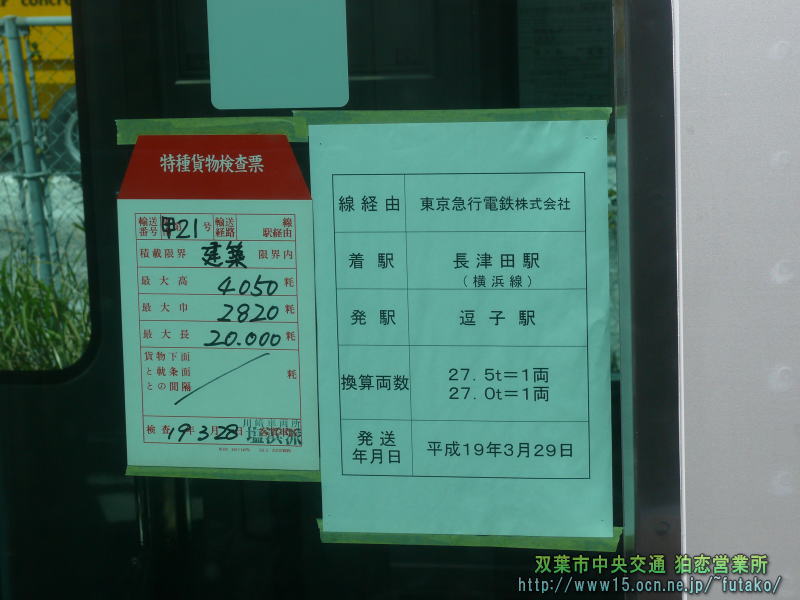 特種貨物検査票
輸送番号 甲21号 輸送経路 線 駅経由
積載限界 建築 限界内
最大高 4050 粍
最大巾 2820 粍
最大長 20.000 粍
貨物下面
と軌条面 粍
との間隔
検査 19年3月28日 塩浜派
線経由 東京急行電鉄株式会社
着駅 長津田駅
(横浜線)
発駅 逗子駅
換算両数 27.5t=1両
27.0t=1両
発送年月日 平成19年3月29日
双葉市中央交通 狛恋営業所
http://www15.ocn.ne.jp/~futako/